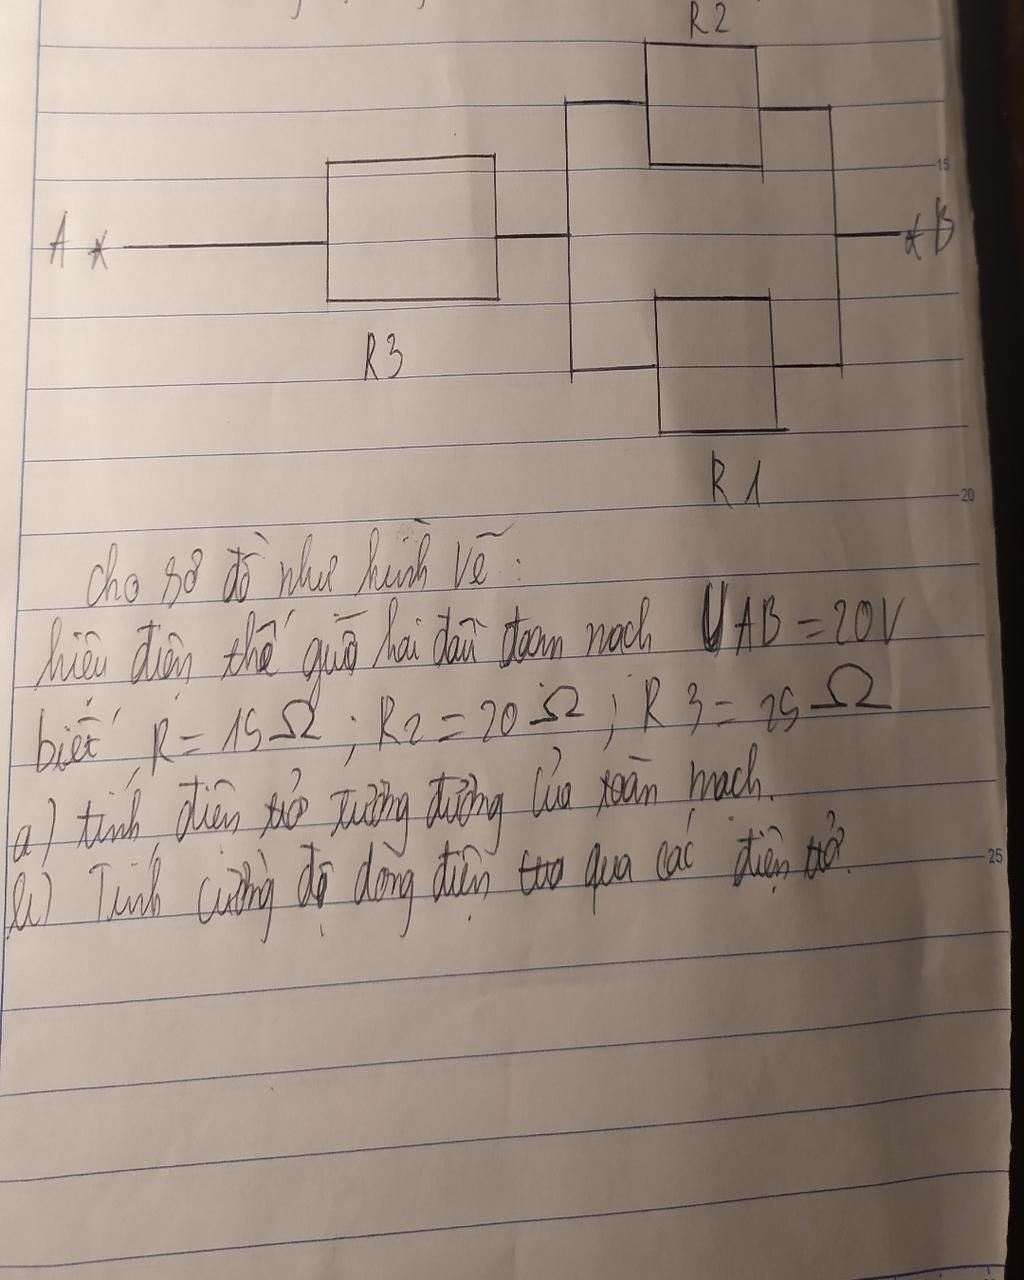 R2
15
A
B
R3
R1
20
Cho sơ đồ như hình vẽ:
hiệu điện thế giữa hai đầu đoạn mạch UAB = 20V
biết R = 15Ω ; R2 = 20Ω ; R3 = 25Ω
a) tính điện trở tương đương của toàn mạch.
b) Tính cường độ dòng điện qua các điện trở.
25